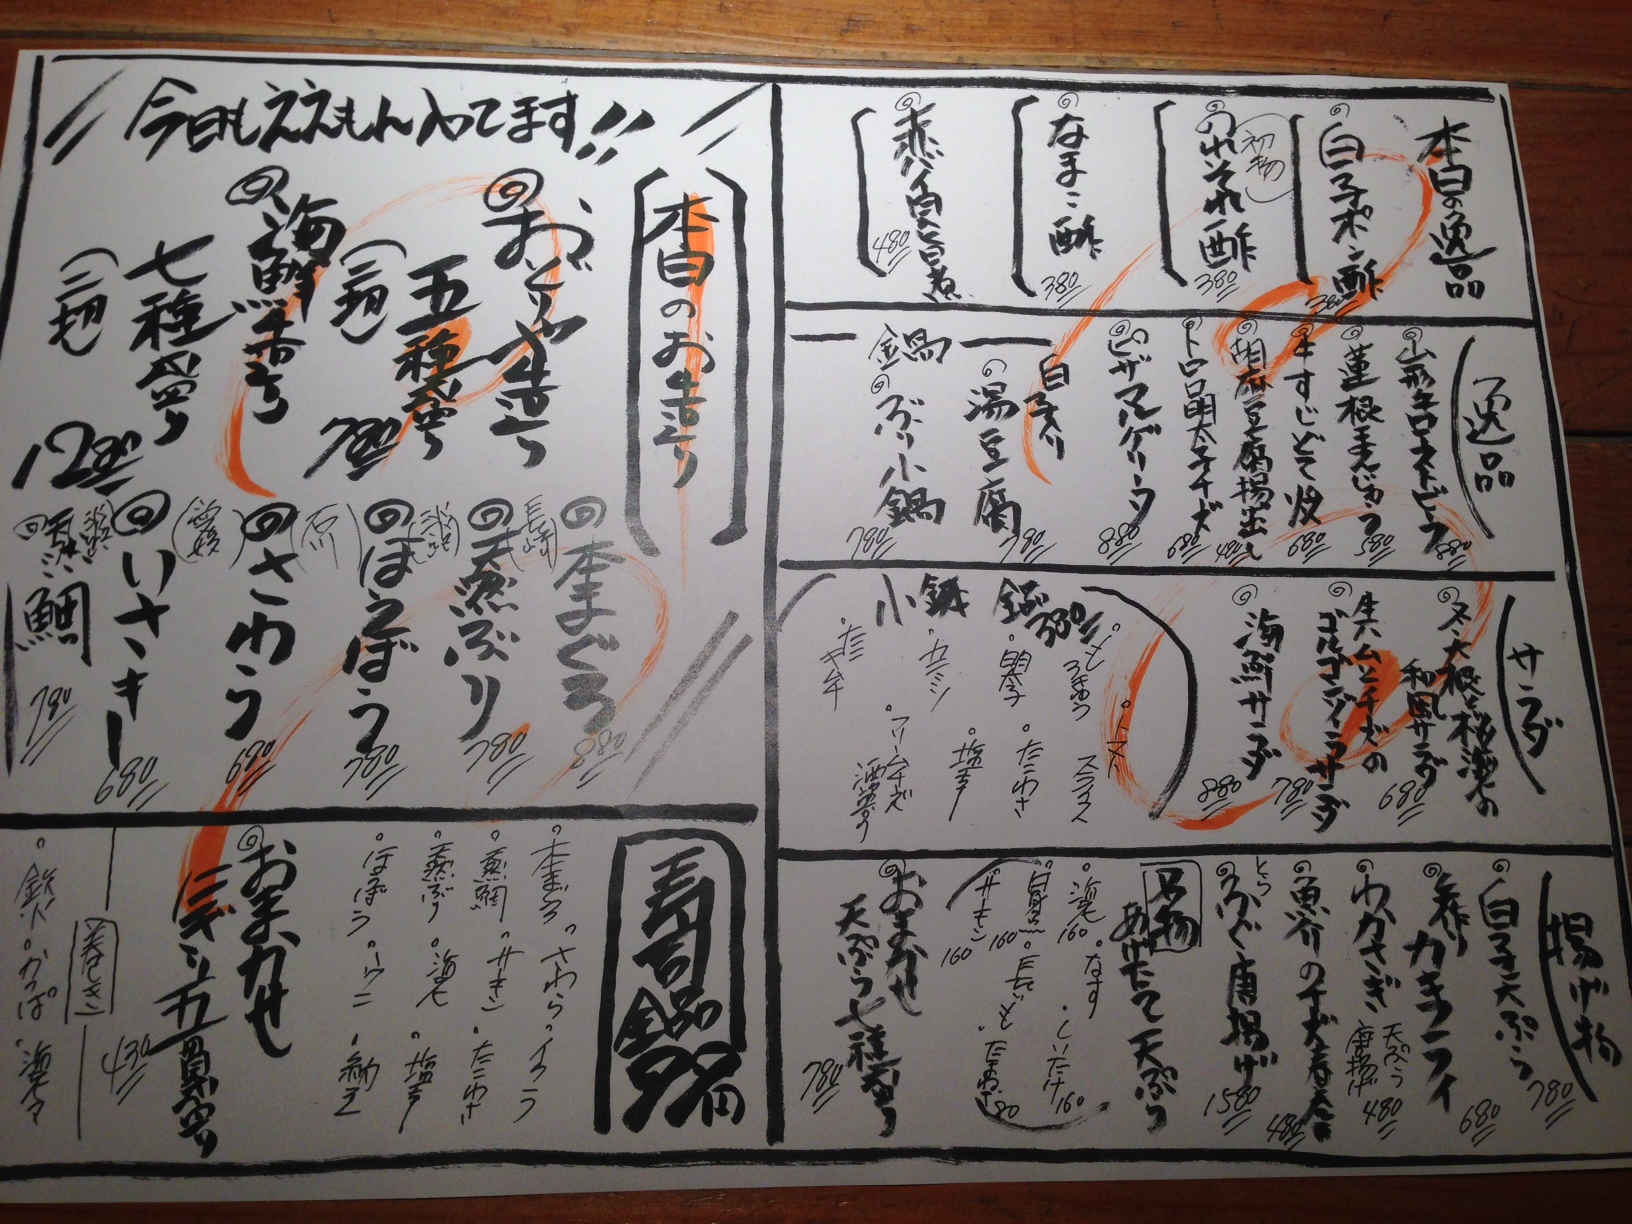 本日の逸品
白子ポン酢
380
初物
のれそれ酢
380
なまこ酢
380
赤バイ貝旨煮
480
逸品
山形牛ローストビーフ
880
蓮根まんじゅう
580
牛すじどて焼
680
胡麻豆腐揚出し
480
トロロ明太子チーズ
680
ピザマルゲリータ
880
鍋
白子入り
湯豆腐
780
ぶり小鍋
780
サラダ
冬大根と桜海老の
和風サラダ
680
生ハムとチーズの
ゴルゴンゾーラサラダ
780
海鮮サラダ
880
小鉢
380
トマトスライス
明太子
たこわさ
塩辛
クリームチーズ
酒盗
揚げ物
白子天ぷら
780
カキフライ
680
わかさぎ
天ぷら
唐揚げ
480
魚介のチーズ春巻
480
とらふぐ唐揚げ
1580
名物
あげたて天ぷら
海老
160
なす
しいたけ
160
白身魚
160
長いも
たまねぎ
80
160
おまかせ
天ぷら七種盛り
780
今日もええもん入ってます!!
本日のお造り
おつくり
五種盛り
(二切)
780
海鮮造り
七種盛り
(二切)
1280
本まぐろ
880
長崎
天然ぶり
780
ほうぼう
780
石川
さわら
680
愛媛
いさき
680
天然
鯛
780
寿司
全品
本まぐろ
さわら
イクラ
天然鯛
たこわさ
天然ぶり
海老
塩辛
ほうぼう
ウニ
納豆
おまかせ
にぎり五貫盛り
430
巻き
鉄火
かっぱ